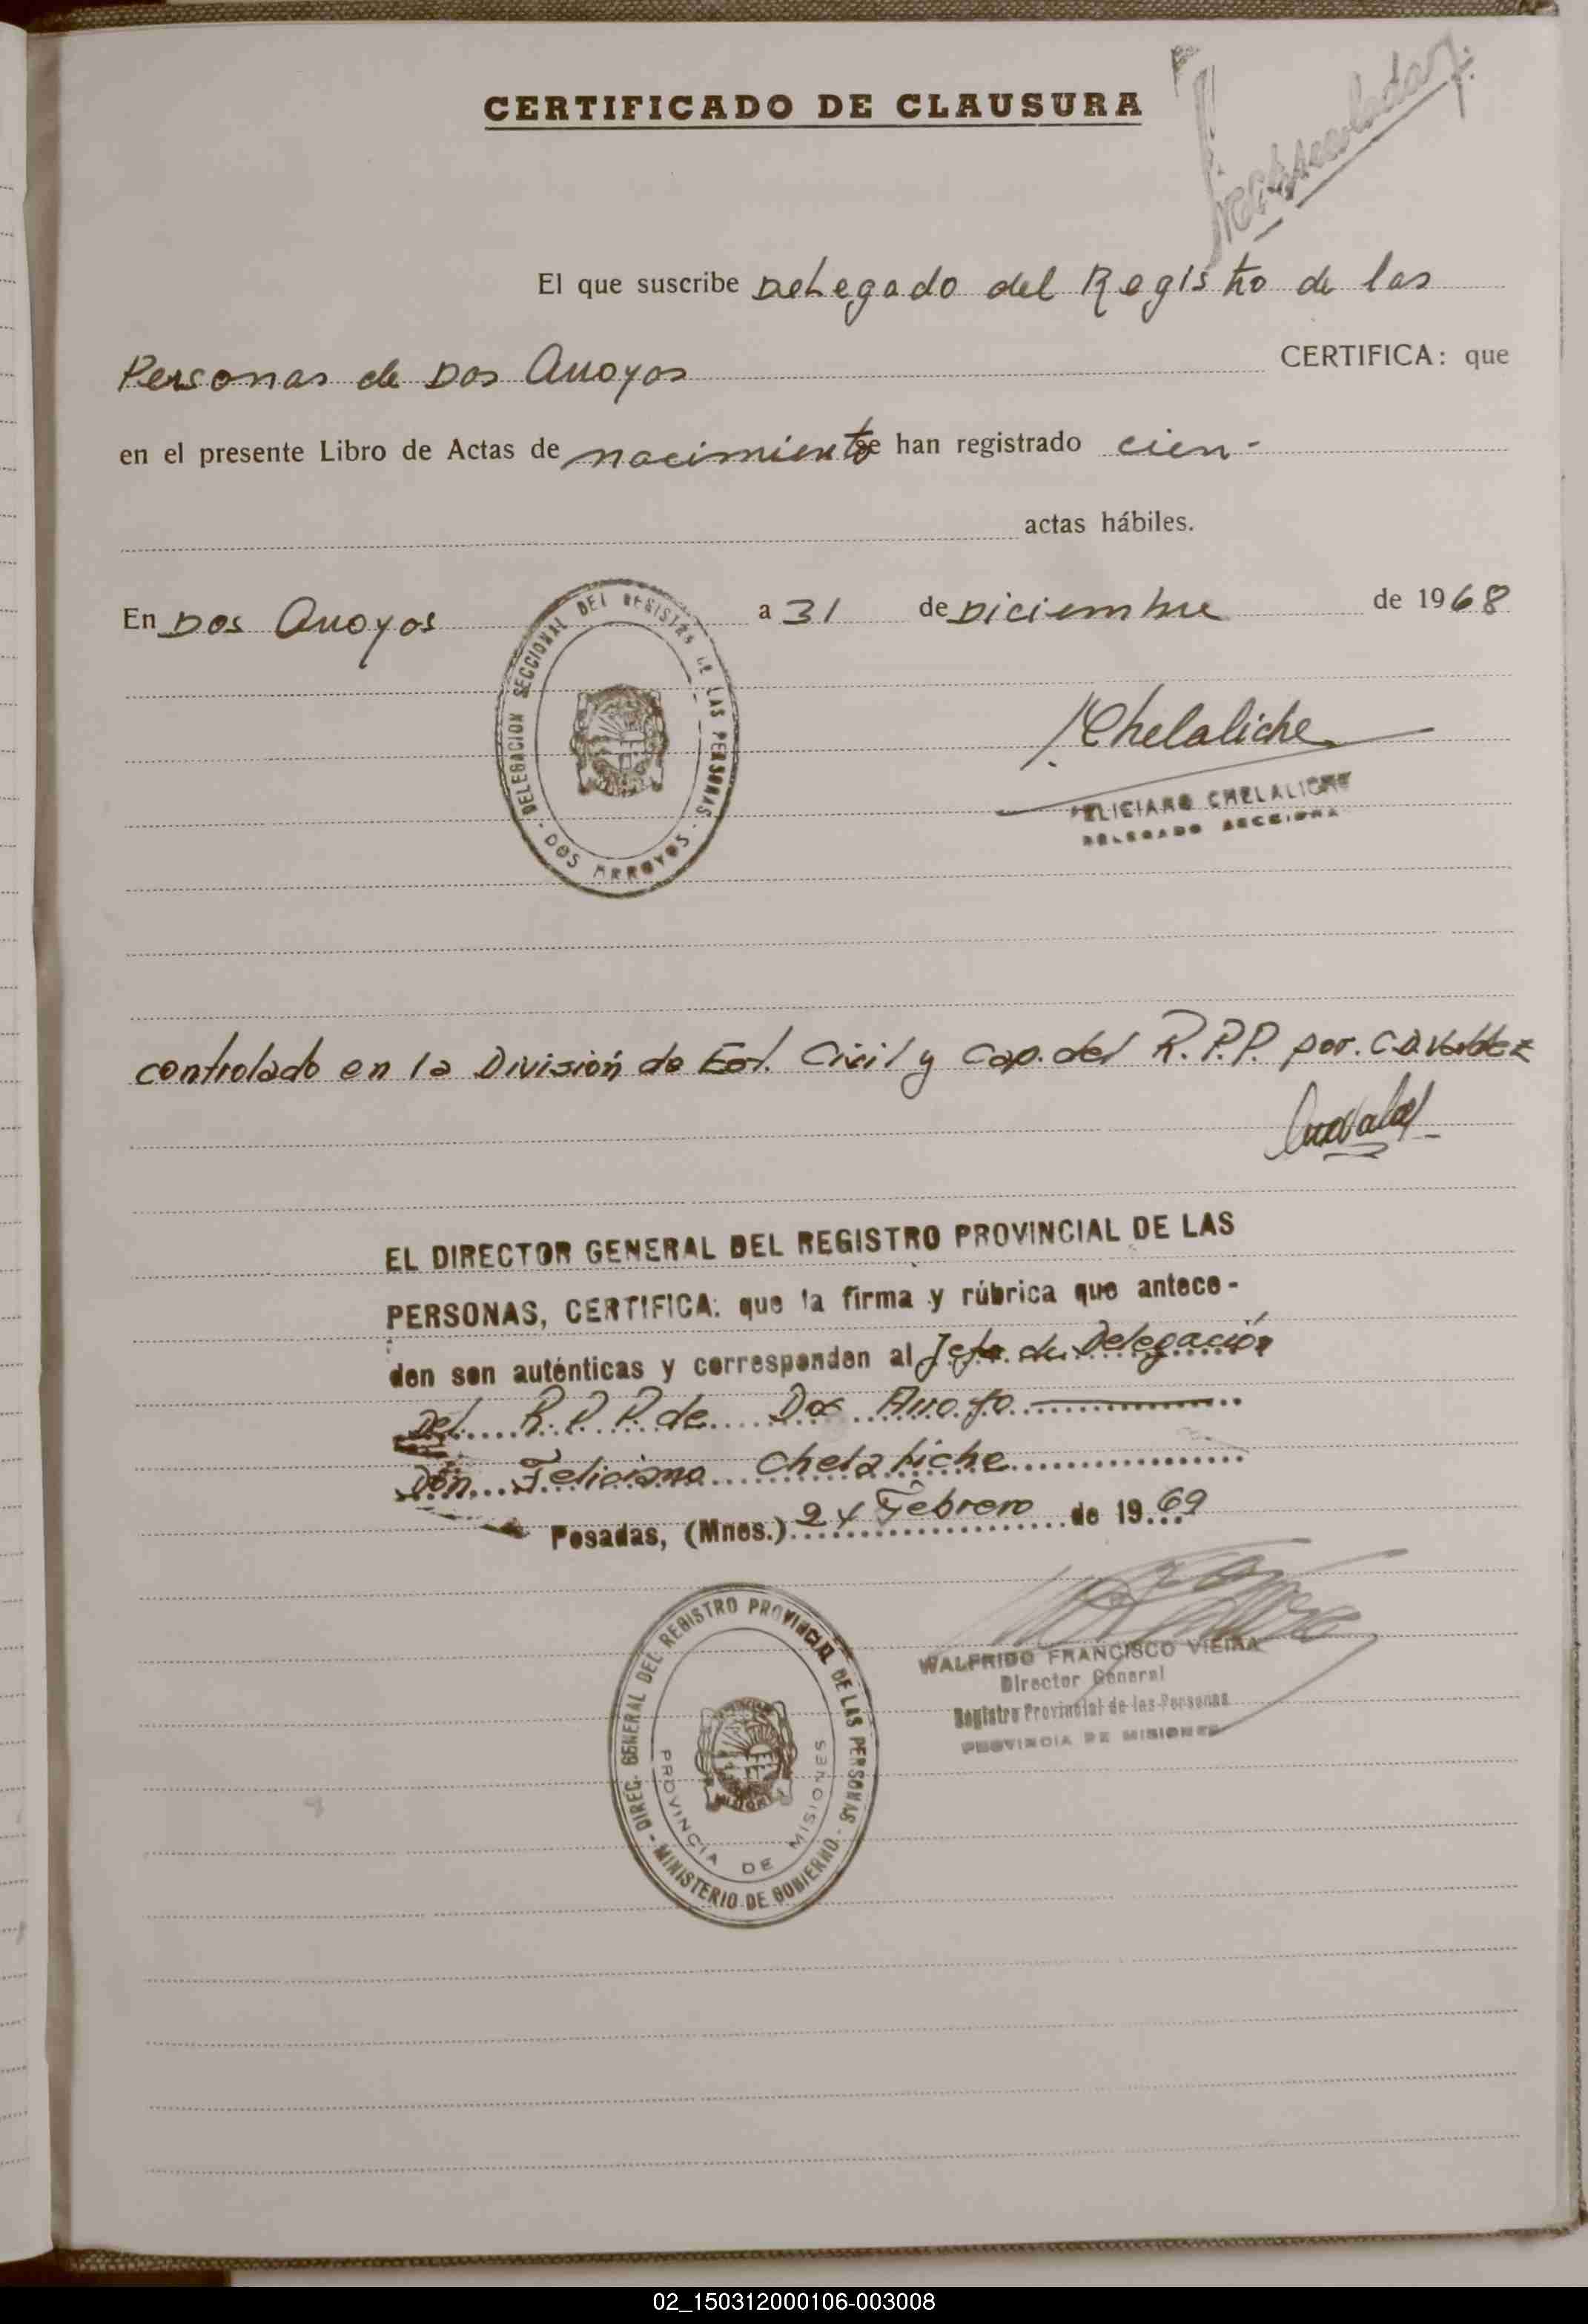 CERTIFICADO DE CLAUSURA
El que suscribe Delegado del Registro de las
Personas de Dos Arroyos CERTIFICA: que
en el presente Libro de Actas de nacimiento se han registrado cien-
actas hábiles.
En Dos Arroyos a 31 de Diciembre de 1968
DELEGACION SECCIONAL DEL REGISTRO DE LAS PERSONAS - DOS ARROYOS -
Chelaliche
FELICIANO CHELALICHE
DELEGADO SECCIONAL
controlado en la División de Est. Civil y Cap. del R.P.P. por. C.D. Valdez
EL DIRECTOR GENERAL DEL REGISTRO PROVINCIAL DE LAS
PERSONAS, CERTIFICA: que la firma y rúbrica que antece-
den son auténticas y corresponden al Jefe de Delegación
Del R.P.P. de Dos Arroyo
Don Feliciano Chelaliche
Posadas, (Mnes.) 24 Febrero de 1969
DIREC. GENERAL DEL REGISTRO PROVINCIAL DE LAS PERSONAS - MINISTERIO DE GOBIERNO -
PROVINCIA DE MISIONES
WALFRIDO FRANCISCO VIEIRA
Director General
Registro Provincial de las Personas
PROVINCIA DE MISIONES
02_150312000106-003008